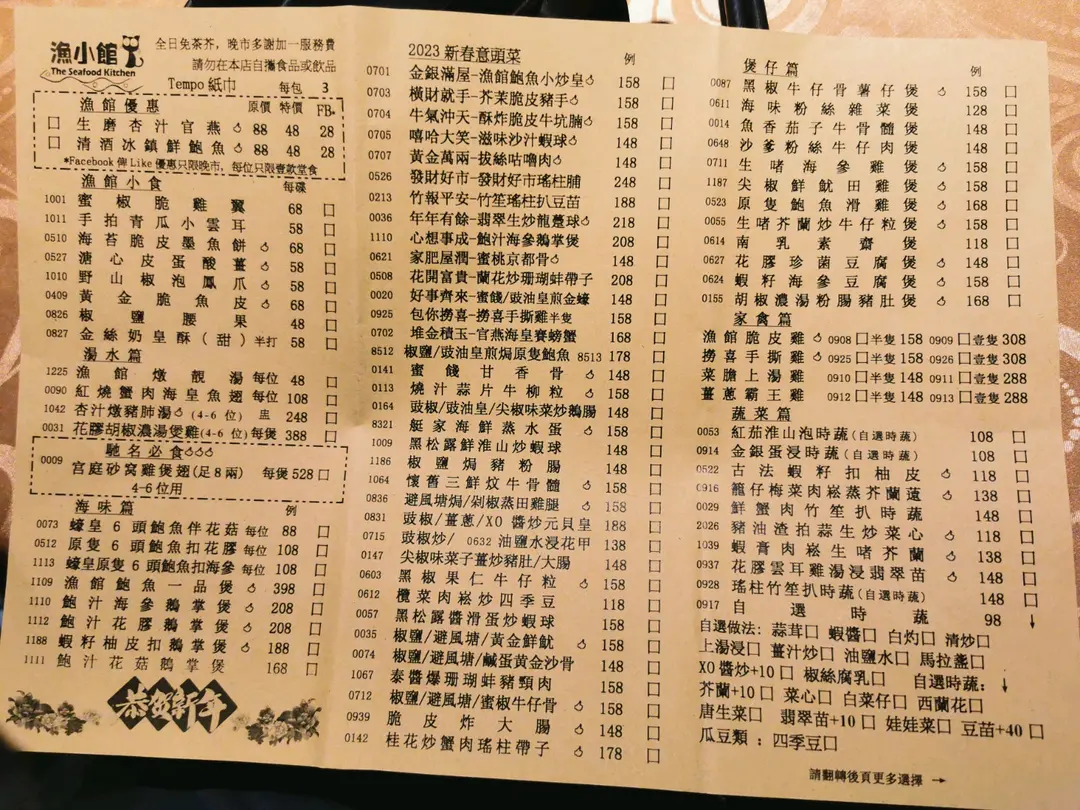 漁小館
The Seafood Kitchen
全日免茶芥，晚市多謝加一服務費
請勿在本店自攜食品或飲品
Tempo 紙巾 每包 3
漁館優惠 原價 特價 FB*
□ 生磨杏汁官燕 88 48 28
□ 清酒冰鎮鮮鮑魚 88 48 28
*Facebook 俾 Like 優惠只限晚市，每位只限壹款堂食
漁館小食 每碟
1001 蜜椒脆雞翼 68 □
1011 手拍青瓜小雲耳 58 □
0510 海苔脆皮墨魚餅 68 □
0527 溏心皮蛋酸薑 58 □
1010 野山椒泡鳳爪 58 □
0409 黃金脆魚皮 68 □
0826 椒鹽腰果 48 □
0827 金絲奶皇酥（甜）半打 58 □
湯水篇
1225 漁館燉靚湯 每位 48 □
0090 紅燒蟹肉海皇魚翅 每位 108 □
1042 杏汁燉豬肺湯 (4-6 位) 盅 248 □
0031 花膠胡椒濃湯煲雞(4-6 位)每煲 388 □
馳名必食
0009 宮庭砂窩雞煲翅(足 8 兩) 每煲 528 □
4-6 位用
海味篇 例
0073 蠔皇 6 頭鮑魚伴花菇 每位 88 □
0512 原隻 6 頭鮑魚扣花膠 每位 108 □
1113 蠔皇原隻 6 頭鮑魚扣海參 每位 108 □
1109 漁館鮑魚一品煲 398 □
1110 鮑汁海參鵝掌煲 208 □
1112 鮑汁花膠鵝掌煲 208 □
1188 蝦籽柚皮扣鵝掌煲 188 □
1111 鮑汁花菇鵝掌煲 168 □
恭賀新年
2023 新春意頭菜 例
0701 金銀滿屋-漁館鮑魚小炒皇 158 □
0703 橫財就手-芥茉脆皮豬手 158 □
0704 牛氣沖天-酥炸脆皮牛坑腩 158 □
0705 嘻哈大笑-滋味沙汁蝦球 148 □
0707 黃金萬兩-拔絲咕嚕肉 148 □
0526 發財好市-發財好市瑤柱脯 248 □
0213 竹報平安-竹笙瑤柱扒豆苗 188 □
0036 年年有餘-翡翠生炒龍躉球 218 □
1110 心想事成-鮑汁海參鵝掌煲 208 □
0621 家肥屋潤-蜜桃京都骨 148 □
0508 花開富貴-蘭花炒珊瑚蚌帶子 208 □
0020 好事齊來-蜜餞/豉油皇煎金蠔 148 □
0925 包你撈喜-撈喜手撕雞半隻 158 □
0702 堆金積玉-官燕海皇賽螃蟹 168 □
8512 椒鹽/豉油皇煎焗原隻鮑魚 8513 178 □
0141 蜜餞甘香骨 148 □
0113 燒汁蒜片牛柳粒 158 □
0164 豉椒/豉油皇/尖椒味菜炒鵝腸 148 □
8321 艇家海鮮蒸水蛋 158 □
1009 黑松露鮮淮山炒蝦球 148 □
1186 椒鹽焗豬粉腸 148 □
1064 懷舊三鮮炆牛骨髓 158 □
0836 避風塘焗/剁椒蒸田雞腿 158 □
0831 豉椒/薑蔥/XO 醬炒元貝皇 188 □
0715 豉椒炒/ 0632 油鹽水浸花甲 138 □
0147 尖椒味菜子薑炒豬肚/大腸 148 □
0603 黑椒果仁牛仔粒 158 □
0612 欖菜肉崧炒四季豆 118 □
0057 黑松露醬滑蛋炒蝦球 158 □
0035 椒鹽/避風塘/黃金鮮魷 158 □
0074 椒鹽/避風塘/鹹蛋黃金沙骨 148 □
1067 泰醬爆珊瑚蚌豬頸肉 158 □
0712 椒鹽/避風塘/蜜椒牛仔骨 158 □
0939 脆皮炸大腸 148 □
0142 桂花炒蟹肉瑤柱帶子 178 □
煲仔篇 例
0087 黑椒牛仔骨薯仔煲 158 □
0611 海味粉絲雜菜煲 128 □
0014 魚香茄子牛骨髓煲 148 □
0648 沙爹粉絲牛仔肉煲 148 □
0711 生啫海參雞煲 158 □
1187 尖椒鮮魷田雞煲 158 □
0523 原隻鮑魚滑雞煲 168 □
0055 生啫芥蘭炒牛仔粒煲 158 □
0614 南乳素齋煲 118 □
0627 花膠珍菌豆腐煲 148 □
0624 蝦籽海參豆腐煲 158 □
0155 胡椒濃湯粉腸豬肚煲 168 □
家禽篇
漁館脆皮雞 0908 □半隻 158 0909 □壹隻 308
撈喜手撕雞 0925 □半隻 158 0926 □壹隻 308
菜膽上湯雞 0910 □半隻 148 0911 □壹隻 288
薑蔥霸王雞 0912 □半隻 148 0913 □壹隻 288
蔬菜篇
0053 紅茄淮山泡時蔬(自選時蔬) 108 □
0914 金銀蛋浸時蔬(自選時蔬) 108 □
0522 古法蝦籽扣柚皮 118 □
0916 籠仔梅菜肉崧蒸芥蘭薳 138 □
0029 鮮蟹肉竹笙扒時蔬 148 □
2026 豬油渣拍蒜生炒菜心 118 □
1039 蝦膏肉崧生啫芥蘭 138 □
0937 花膠雲耳雞湯浸翡翠苗 148 □
0928 瑤柱竹笙扒時蔬(自選時蔬) 148 □
0917 自選時蔬 98 ↓
自選做法：蒜茸□ 蝦醬□ 白灼□ 清炒□
上湯浸□ 薑汁炒□ 油鹽水□ 馬拉盞□
XO 醬炒+10□ 椒絲腐乳□ 自選時蔬：↓
芥蘭+10□ 菜心□ 白菜仔□ 西蘭花□
唐生菜□ 翡翠苗+10□ 娃娃菜□ 豆苗+40□
瓜豆類：四季豆□
請翻轉後頁更多選擇 →